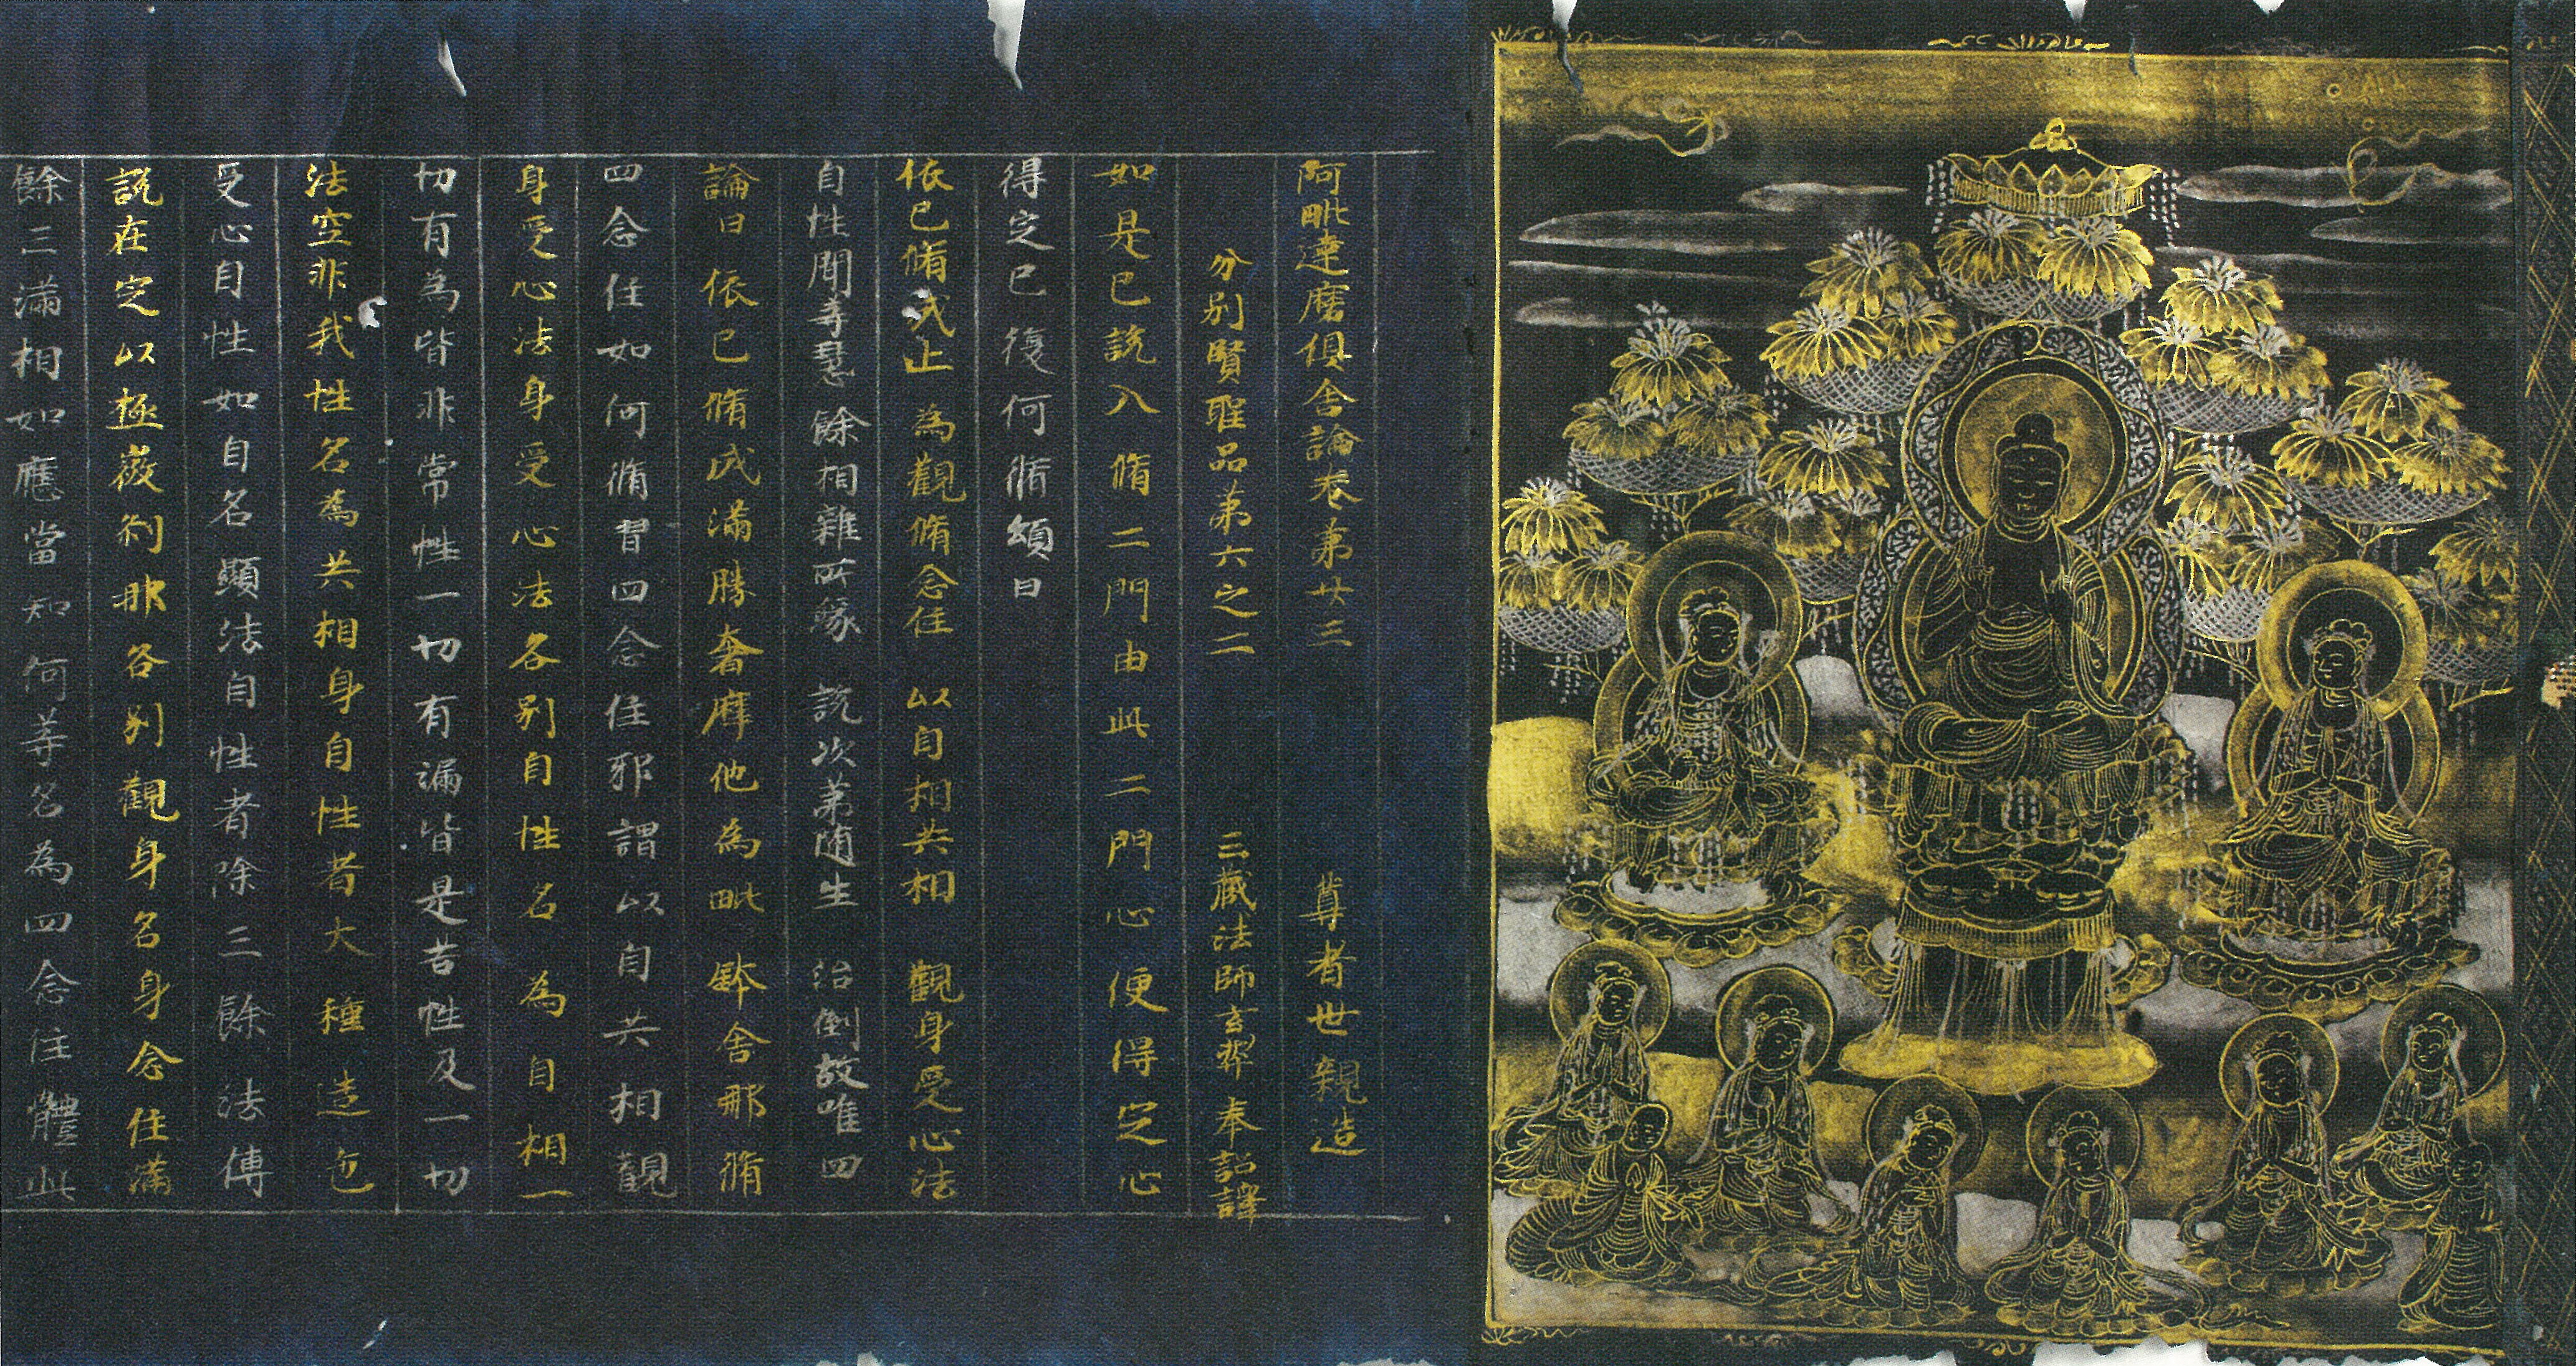 阿毗達磨俱舍論卷第廿三　尊者世親造
分別賢聖品第六之二　三藏法師玄奘奉詔譯
如是已說入脩二門由此二門心便得定心
得定已復何脩頌曰
依已脩成止　為觀脩念住　以自相共相　觀身受心法
自性聞等慧　餘相雜所緣　說次第随生　治倒故唯四
論曰依已脩成滿勝奢摩他為毗鉢舍那脩
四念住如何脩習四念住耶謂以自共相觀
身受心法身受心法各別自性名為自相一
切有為皆非常性一切有漏皆是苦性及一切
法空非我性名為共相身自性者大種造色
受心自性如自名顯法自性者除三餘法傳
說在定以極微刹那各別觀身名身念住滿
餘三滿相如應當知何等名為四念住體此